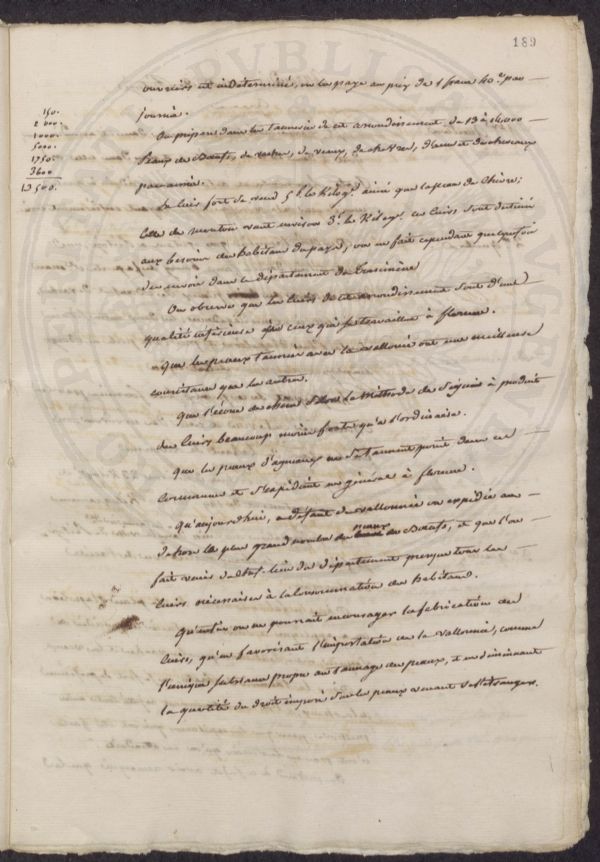 189
ouvriers est indeterminé, on les paye au prix de 1 franc 40 c. par
journée.
150.
2000.
1000.
5000.
1750.
3600
13500.
On prépare dans les tanneries de cet arrondissement de 13 à 14,000
peaux de Bœufs, de vaches, de veaux, de chevres, d'anes et de chevaux
par année.
Le cuir fort se vend 5 f. le Kilog. ainsi que la peau de Chèvre;
celle de mouton vaut environ 3 f. le Kilog. ces cuirs sont destinés
aux besoins des habitans du pays, on en fait cependant quelques fois
des envois dans le département du Trasimène
On observe que les cuirs de cet arrondissement sont d'une
qualité inférieure à ceux qui se travaillent à florence.
Que les peaux tannées avec la vallonée ont une meilleure
consistance que les autres.
Que l'écorce de chêne selon la Méthode de Seguin à produit
des cuirs beaucoup moins forts qu'à l'ordinaire.
Que les peaux d'agneaux ne se tannent point dans cet
commune et s'expédient en général à florence.
Qu'aujourd'hui, à défaut de vallonnée on expédie au
dehors le plus grand nombre des peaux de Bœufs, et que l'on
fait venir du dehors du Département presque tous les
cuirs nécessaires à la consommation des habitans.
Qu'enfin on ne pourrait encourager la fabrication des
cuirs, qu'en favorisant l'importation de la vallonnée, comme
l'unique substance propre au tannage des peaux, et en diminuant
la quotité du droit imposé sur les peaux venant de l'Etranger.